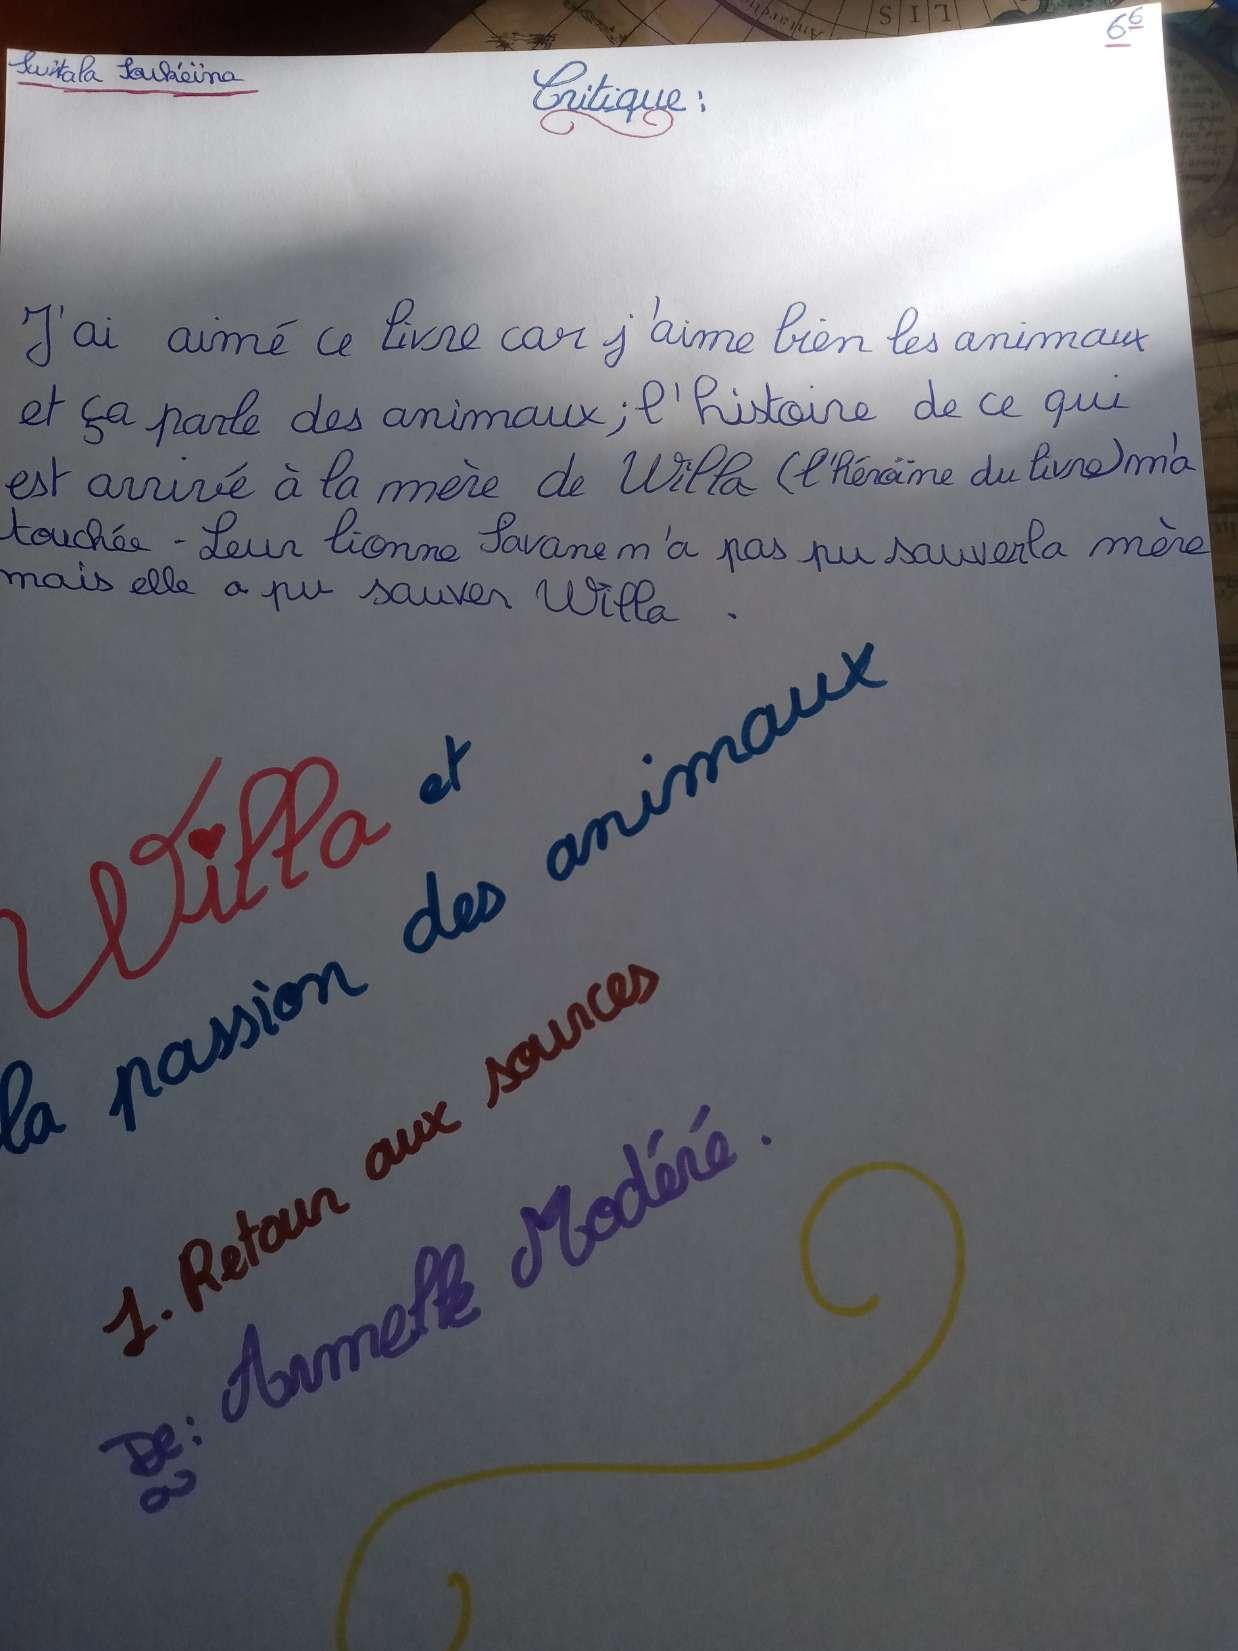 Switala Soukéïna
6⁶
Critique :
J'ai aimé ce livre car j'aime bien les animaux
et ça parle des animaux ; l'histoire de ce qui
est arrivé à la mère de Willa (l'héroïne du livre) m'a
touchée - Leur lionne Savane n'a pas pu sauver la mère
mais elle a pu sauver Willa .
Willa et
la passion des animaux
1. Retour aux sources
De : Armelle Modéré .